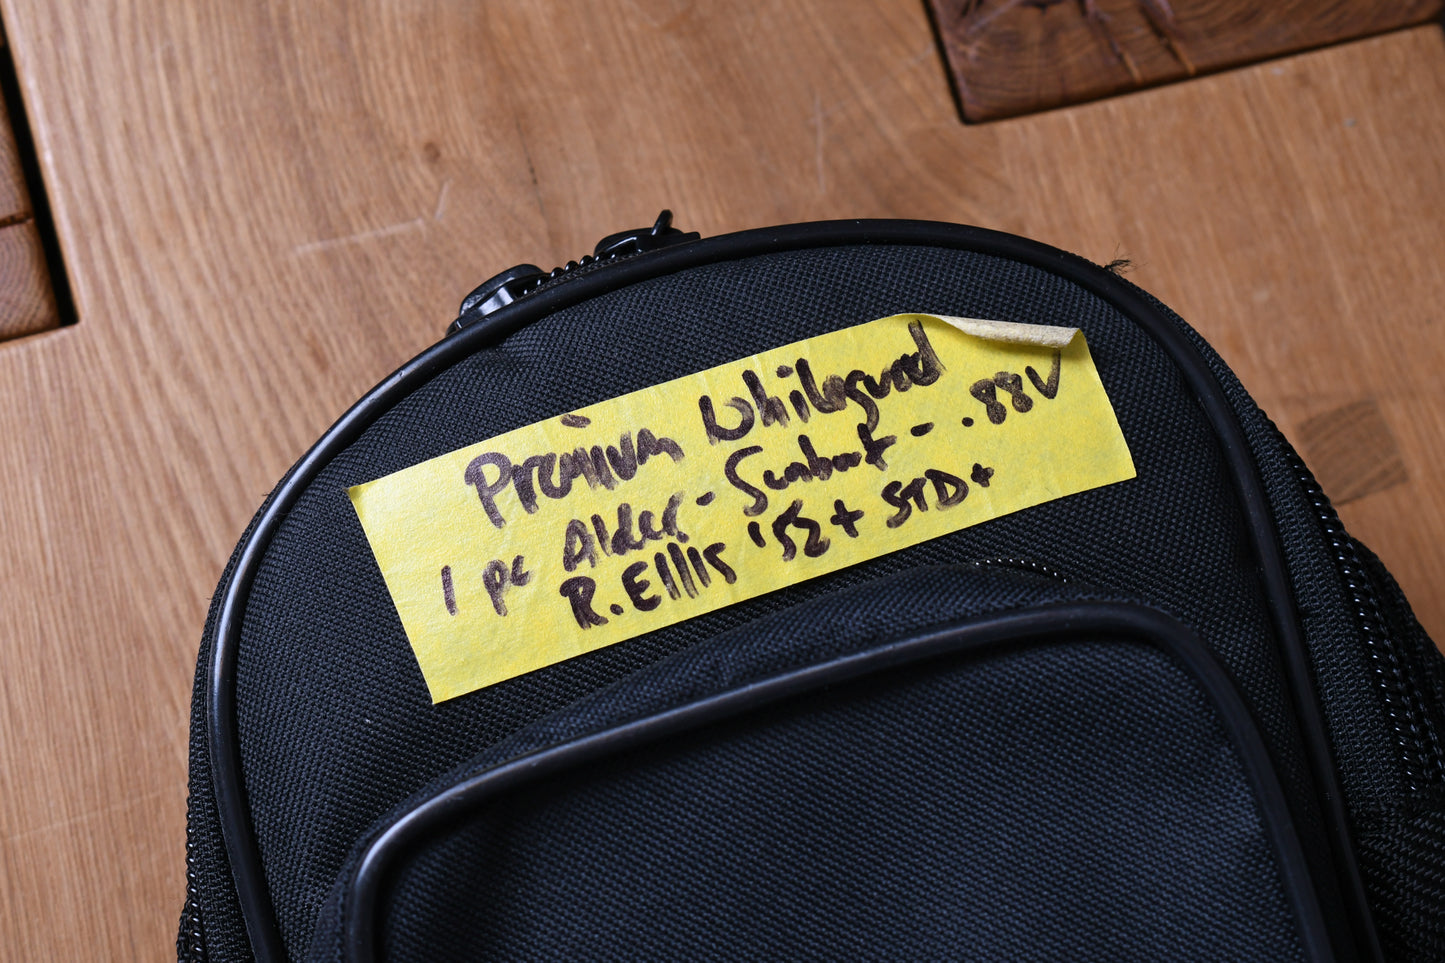 Premium Whiteguard
1 pc Alder - Sunburst - .88V
R. Ellis '52+ STD+